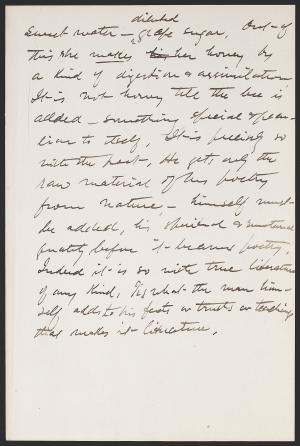 diluted
sweet water – grape sugar, Out-of
this she makes her honey by
a kind of digestion & assimilation
It-is not honey till the bee is
added – something special & pecu-
liar to itself, It-is precisely so
with the poet, He gets only the
raw material of his poetry
from nature, – himself must-
be added, his spiritual & emotional
quality before it-becomes poetry.
Indeed it-is so with true literature
of any kind, Tis what-the man him-
self adds to his facts or truths or teachings
that makes it-literature.